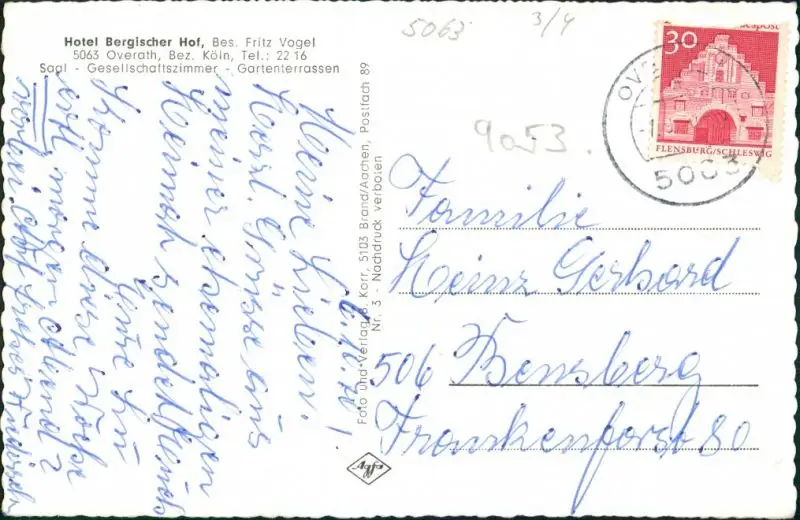 Hotel Bergischer Hof, Bes. Fritz Vogel
5063 Overath, Bez. Köln, Tel.: 22 16
Saal - Gesellschaftszimmer - Gartenterrassen
5063
3/4
30
FLENSBURG/SCHLESWIG
5063
9053.
Foto und Verlag B. Korr, 5103 Brand/Aachen, Postfach 89
Nr. 3 - Nachdruck verboten
Agfa
Meine Lieben!
Herzl. Grüsse aus
meiner ehemaligen
Heimat sendet Euch
Komme diese Woche
erst morgen Abend
vorbei.
Familie
Heinz Gerhard
506 Bensberg
Frankenforst 80